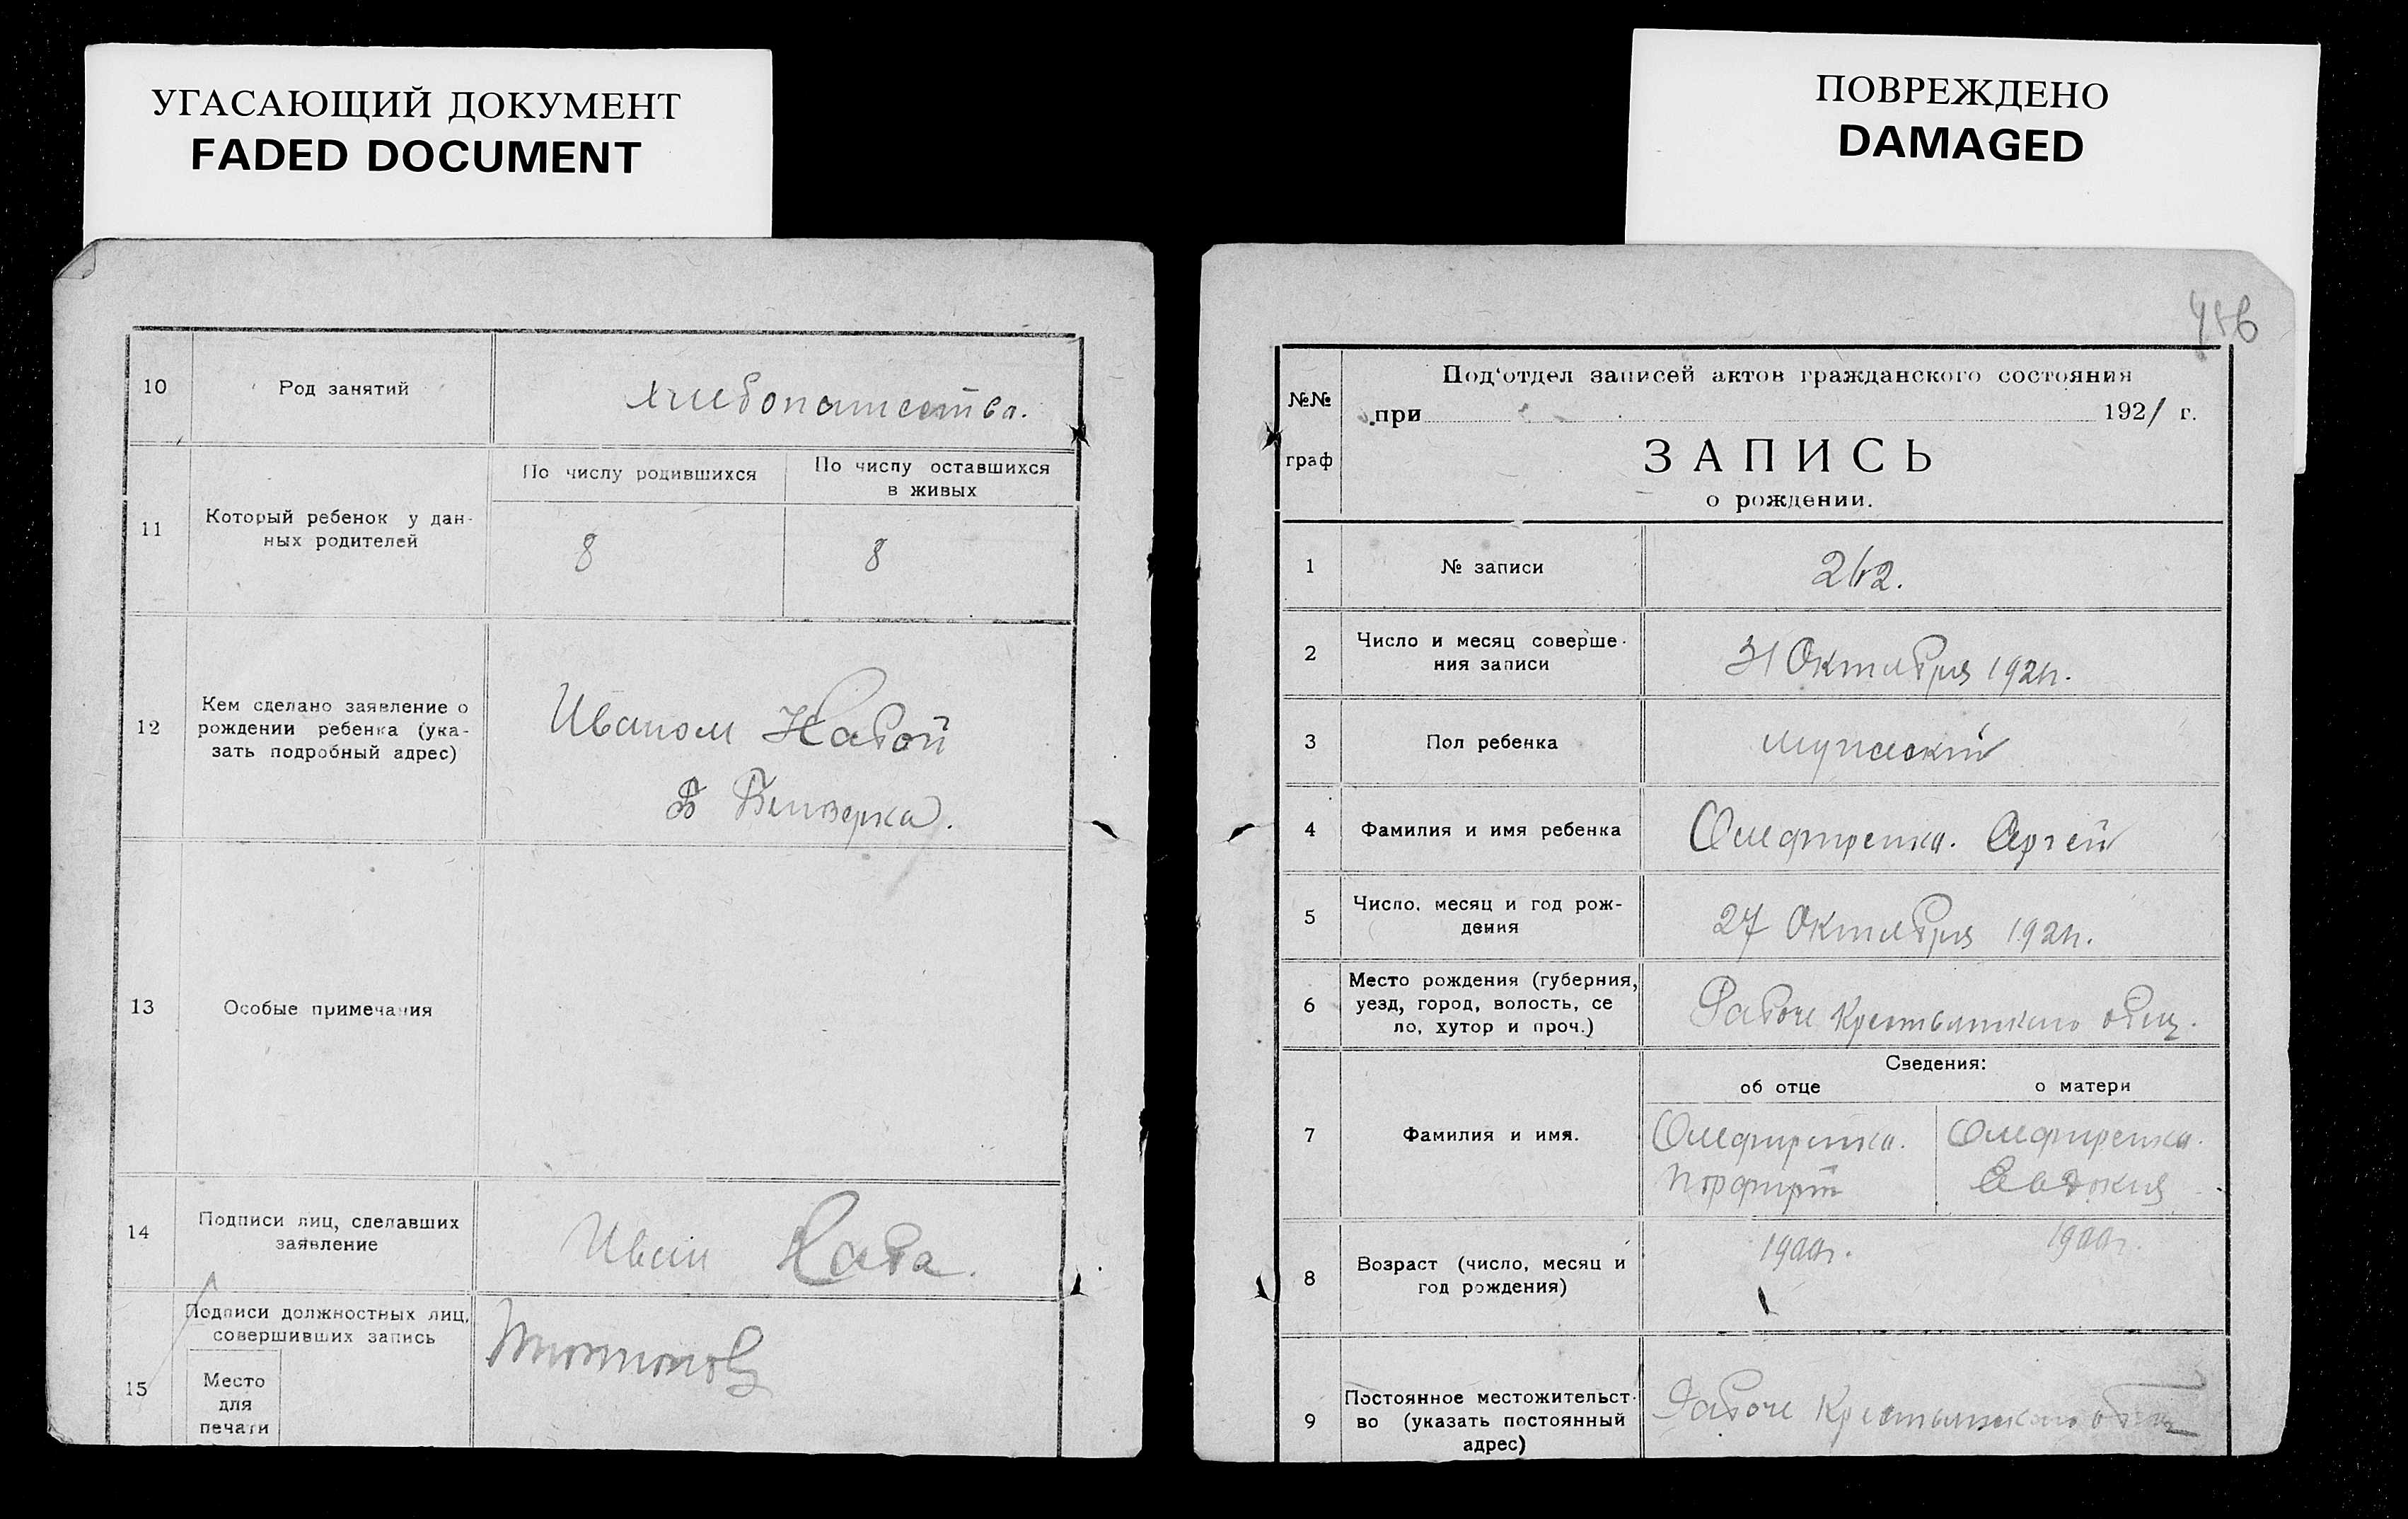 УГАСАЮЩИЙ ДОКУМЕНТ
FADED DOCUMENT
10
Род занятий
хлебопашество.
11
Который ребенок у дан-
ных родителей
По числу родившихся
По числу оставшихся
в живых
8
8
12
Кем сделано заявление о
рождении ребенка (ука-
зать подробный адрес)
Иваном Хабой
13
Особые примечания
14
Подписи лиц, сделавших
заявление
Иван Хаба.
15
Подписи должностных лиц,
совершивших запись
Место
для
печати
ПОВРЕЖДЕНО
DAMAGED
№№
граф
Под'отдел записей актов гражданского состояния
при 1921 г.
ЗАПИСЬ
о рождении.
1
№ записи
262.
2
Число и месяц соверше-
ния записи
31 Октября 1921г.
3
Пол ребенка
мужский
4
Фамилия и имя ребенка
Олефиренко. Сергей
5
Число, месяц и год рож-
дения
27 Октября 1921г.
6
Место рождения (губерния,
уезд, город, волость, се
ло, хутор и проч.)
Рабоче Крестьянского общ.
Сведения:
об отце
о матери
7
Фамилия и имя.
Олефиренко.
Порфирий
Олефиренко.
Евдокия
8
Возраст (число, месяц и
год рождения)
9
Постоянное местожительст-
во (указать постоянный
адрес)
Рабоче Крестьянского общ